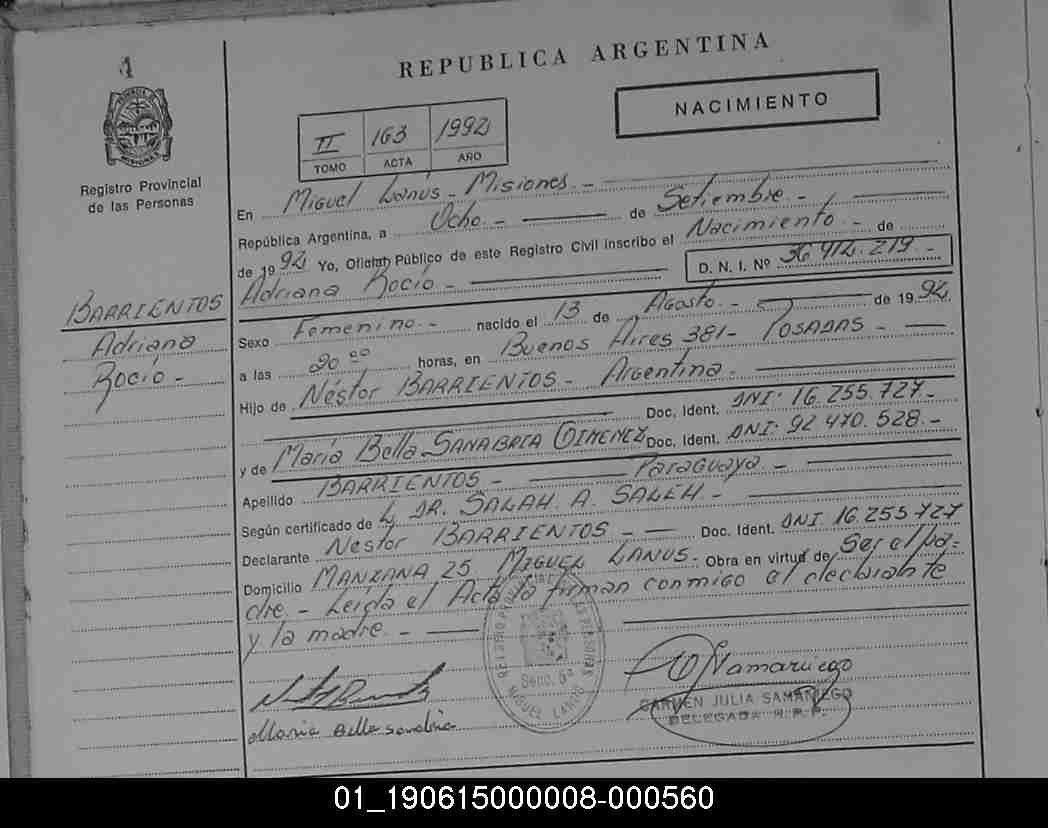 REPUBLICA ARGENTINA
NACIMIENTO
II 163 1992
TOMO ACTA AÑO
PROVINCIA DE MISIONES
Registro Provincial
de las Personas
En Miguel Lanús - Misiones. -
República Argentina, a Ocho. - de Setiembre. -
de 1992 Yo, Oficial Público de este Registro Civil inscribo el Nacimiento - de
Adriana Rocío. - D. N. I. Nº 36.912.219 -
BARRIENTOS
Adriana
Rocío -
Sexo Femenino - nacido el 13 de Agosto. - de 1992
a las 20 00 horas, en Buenos Aires 381 - POSADAS -
Hijo de Néstor BARRIENTOS - Argentina. -
Doc. Ident. DNI: 16.255.727 -
y de María Bella SANABRIA GIMENEZ Doc. Ident. DNI: 92 470.528. -
Apellido BARRIENTOS - Paraguaya -
Según certificado de DR. SALAH. A. SALEH. -
Declarante Nestor BARRIENTOS - Doc. Ident. DNI. 16.255.727
Domicilio MANZANA 25. MIGUEL LANUS. Obra en virtud de Ser el pa-
dre. - Leída el Acta la firman conmigo el declarante
y la madre. -
Secc. 6ª
MIGUEL LANUS
Samaniego
CARMEN JULIA SAMANIEGO
DELEGADA R.P.P.
Maria Bella Sanabria
01_190615000008-000560